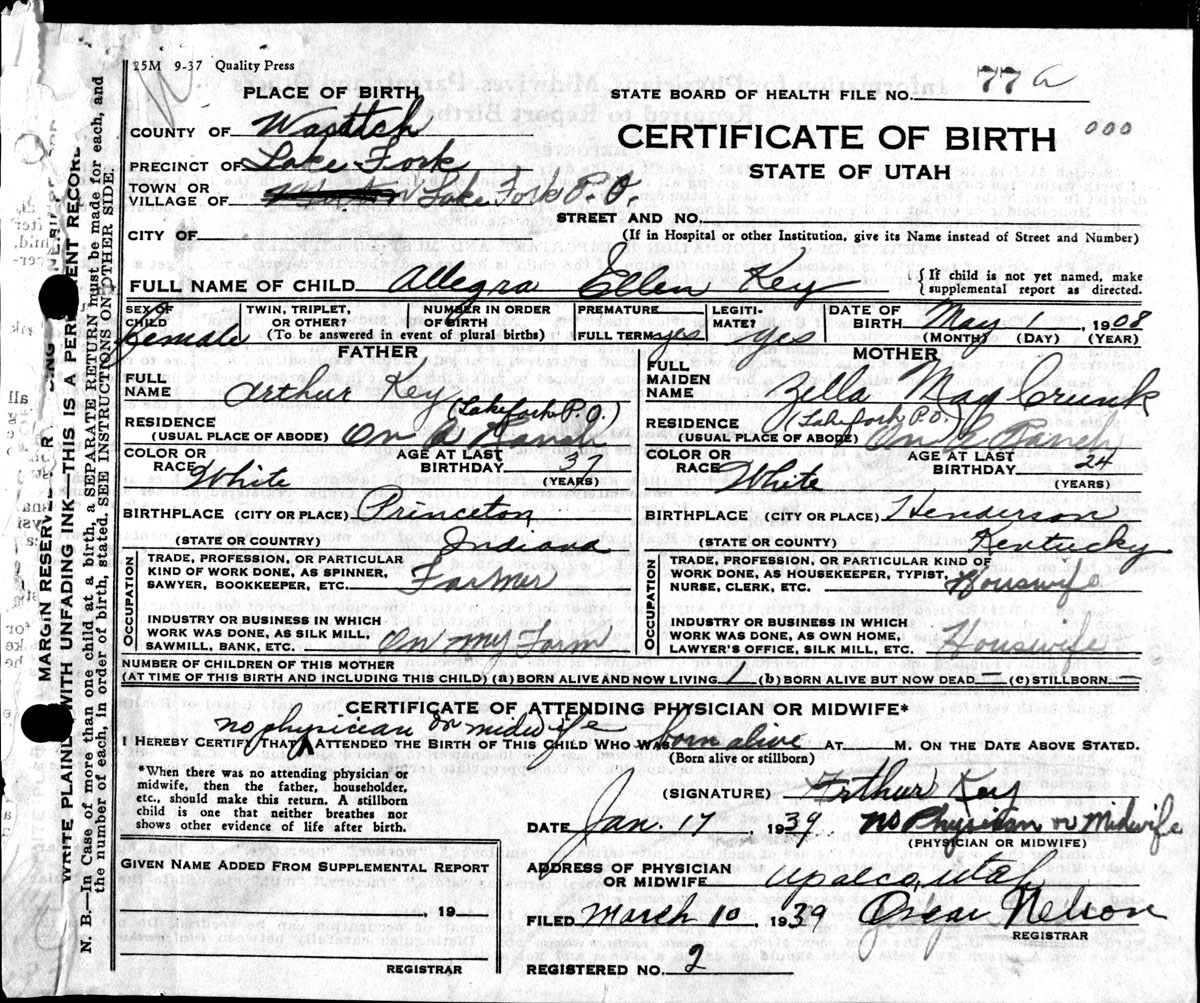 25M 9-37 Quality Press
STATE BOARD OF HEALTH FILE NO. 77a
PLACE OF BIRTH
COUNTY OF Wasatch
CERTIFICATE OF BIRTH 000
PRECINCT OF Lake Fork
STATE OF UTAH
TOWN OR
VILLAGE OF Lake Fork P.O.
STREET AND NO.
CITY OF
(If in Hospital or other Institution, give its Name instead of Street and Number)
FULL NAME OF CHILD Allegra Ellen Key
{If child is not yet named, make
supplemental report as directed.
SEX OF
CHILD female
TWIN, TRIPLET,
OR OTHER?
NUMBER IN ORDER
OF BIRTH
(To be answered in event of plural births)
PREMATURE
FULL TERM yes
LEGITI-
MATE? yes
DATE OF
BIRTH May 1, 1908
(MONTH) (DAY) (YEAR)
FATHER
FULL
NAME Arthur Key
(Lakefork P.O.)
RESIDENCE
(USUAL PLACE OF ABODE) On a Ranch
COLOR OR
RACE White
AGE AT LAST
BIRTHDAY 37
(YEARS)
BIRTHPLACE (CITY OR PLACE) Princeton
(STATE OR COUNTRY) Indiana
OCCUPATION
TRADE, PROFESSION, OR PARTICULAR
KIND OF WORK DONE, AS SPINNER,
SAWYER, BOOKKEEPER, ETC. Farmer
INDUSTRY OR BUSINESS IN WHICH
WORK WAS DONE, AS SILK MILL,
SAWMILL, BANK, ETC. On my Farm
MOTHER
FULL
MAIDEN
NAME Zella May Crunk
RESIDENCE (Lakefork P.O.)
(USUAL PLACE OF ABODE) On a Ranch
COLOR OR
RACE White
AGE AT LAST
BIRTHDAY 24
(YEARS)
BIRTHPLACE (CITY OR PLACE) Henderson
(STATE OR COUNTY) Kentucky
OCCUPATION
TRADE, PROFESSION, OR PARTICULAR KIND OF
WORK DONE, AS HOUSEKEEPER, TYPIST,
NURSE, CLERK, ETC. Houswife
INDUSTRY OR BUSINESS IN WHICH
WORK WAS DONE, AS OWN HOME,
LAWYER'S OFFICE, SILK MILL, ETC. Houswife
NUMBER OF CHILDREN OF THIS MOTHER
(AT TIME OF THIS BIRTH AND INCLUDING THIS CHILD) (a) BORN ALIVE AND NOW LIVING 1 (b) BORN ALIVE BUT NOW DEAD – (c) STILLBORN –
CERTIFICATE OF ATTENDING PHYSICIAN OR MIDWIFE*
no physician or midwife
I HEREBY CERTIFY THAT ATTENDED THE BIRTH OF THIS CHILD WHO WAS born alive AT M. ON THE DATE ABOVE STATED.
(Born alive or stillborn)
*When there was no attending physician or
midwife, then the father, householder,
etc., should make this return. A stillborn
child is one that neither breathes nor
shows other evidence of life after birth.
(SIGNATURE) Arthur Key
DATE Jan. 17, 1939 no Physician or Midwife
(PHYSICIAN OR MIDWIFE)
GIVEN NAME ADDED FROM SUPPLEMENTAL REPORT
, 19
REGISTRAR
ADDRESS OF PHYSICIAN
OR MIDWIFE Upalco, Utah
FILED March 10, 1939 Oscar Nelson
REGISTRAR
REGISTERED NO. 2
MARGIN RESERVED
WRITE PLAINLY WITH UNFADING INK—THIS IS A PERMANENT RECORD
N. B.—In Case of more than one child at a birth, a SEPARATE RETURN must be made for each, and
the number of each, in order of birth, stated. SEE INSTRUCTIONS ON OTHER SIDE.